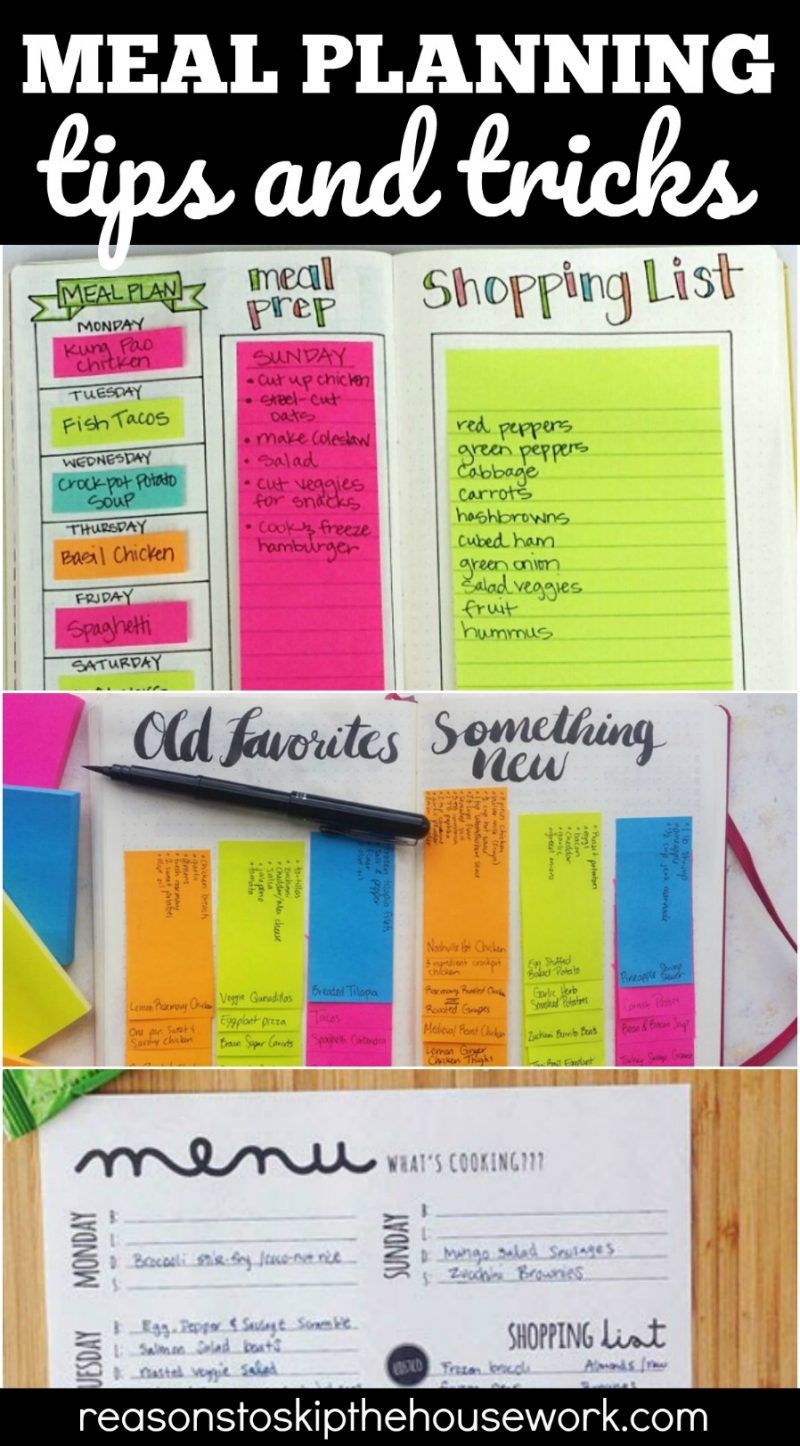 MEAL PLANNING
tips and tricks
MEAL PLAN
MONDAY
Kung Pao
Chicken
TUESDAY
Fish Tacos
WEDNESDAY
Crockpot Potato
Soup
THURSDAY
Basil Chicken
FRIDAY
Spaghetti
SATURDAY
meal
prep
SUNDAY
• cut up chicken
• steel-cut
oats
• make coleslaw
• salad
• cut veggies
for snacks
• cook & freeze
hamburger
Shopping List
red peppers
green peppers
cabbage
carrots
hashbrowns
cubed ham
green onion
salad veggies
fruit
hummus
Old Favorites
Lemon Rosemary Chicken
One pan Sweet &
Savory chicken
tortillas
zucchini
cheddar/Mex cheese
salsa
jalapeno
tomato
Veggie Quesadillas
Eggplant pizza
Brown Sugar Carrots
Breaded Tilapia
Tacos
Spaghetti Carbonara
Something
new
Nashville Hot Chicken
3 ingredient crockpot
chicken
Rosemary Roasted Chicken
Roasted Grapes
Medieval Roast Chicken
Lemon Ginger
Chicken Thighs
bacon
cheddar
garlic
green onions
Egg Stuffed
Baked Potato
Garlic Herb
Smashed Potatoes
Zucchini Burrito Boats
Pineapple Shrimp
Bean & Bacon Soup
menu WHAT'S COOKING???
MONDAY
B:
L:
D: Broccoli stir-fry /coco-nut rice
S:
TUESDAY
B: Egg, Pepper & Sausage Scramble
L: Salmon Salad boats
D: roasted veggie salad
SUNDAY
B:
L:
D: Mango Salad Sausages
S: Zucchini Brownies
SHOPPING list
COSTCO
Frozen brocoli
Almonds /raw
reasonstoskipthehousework.com